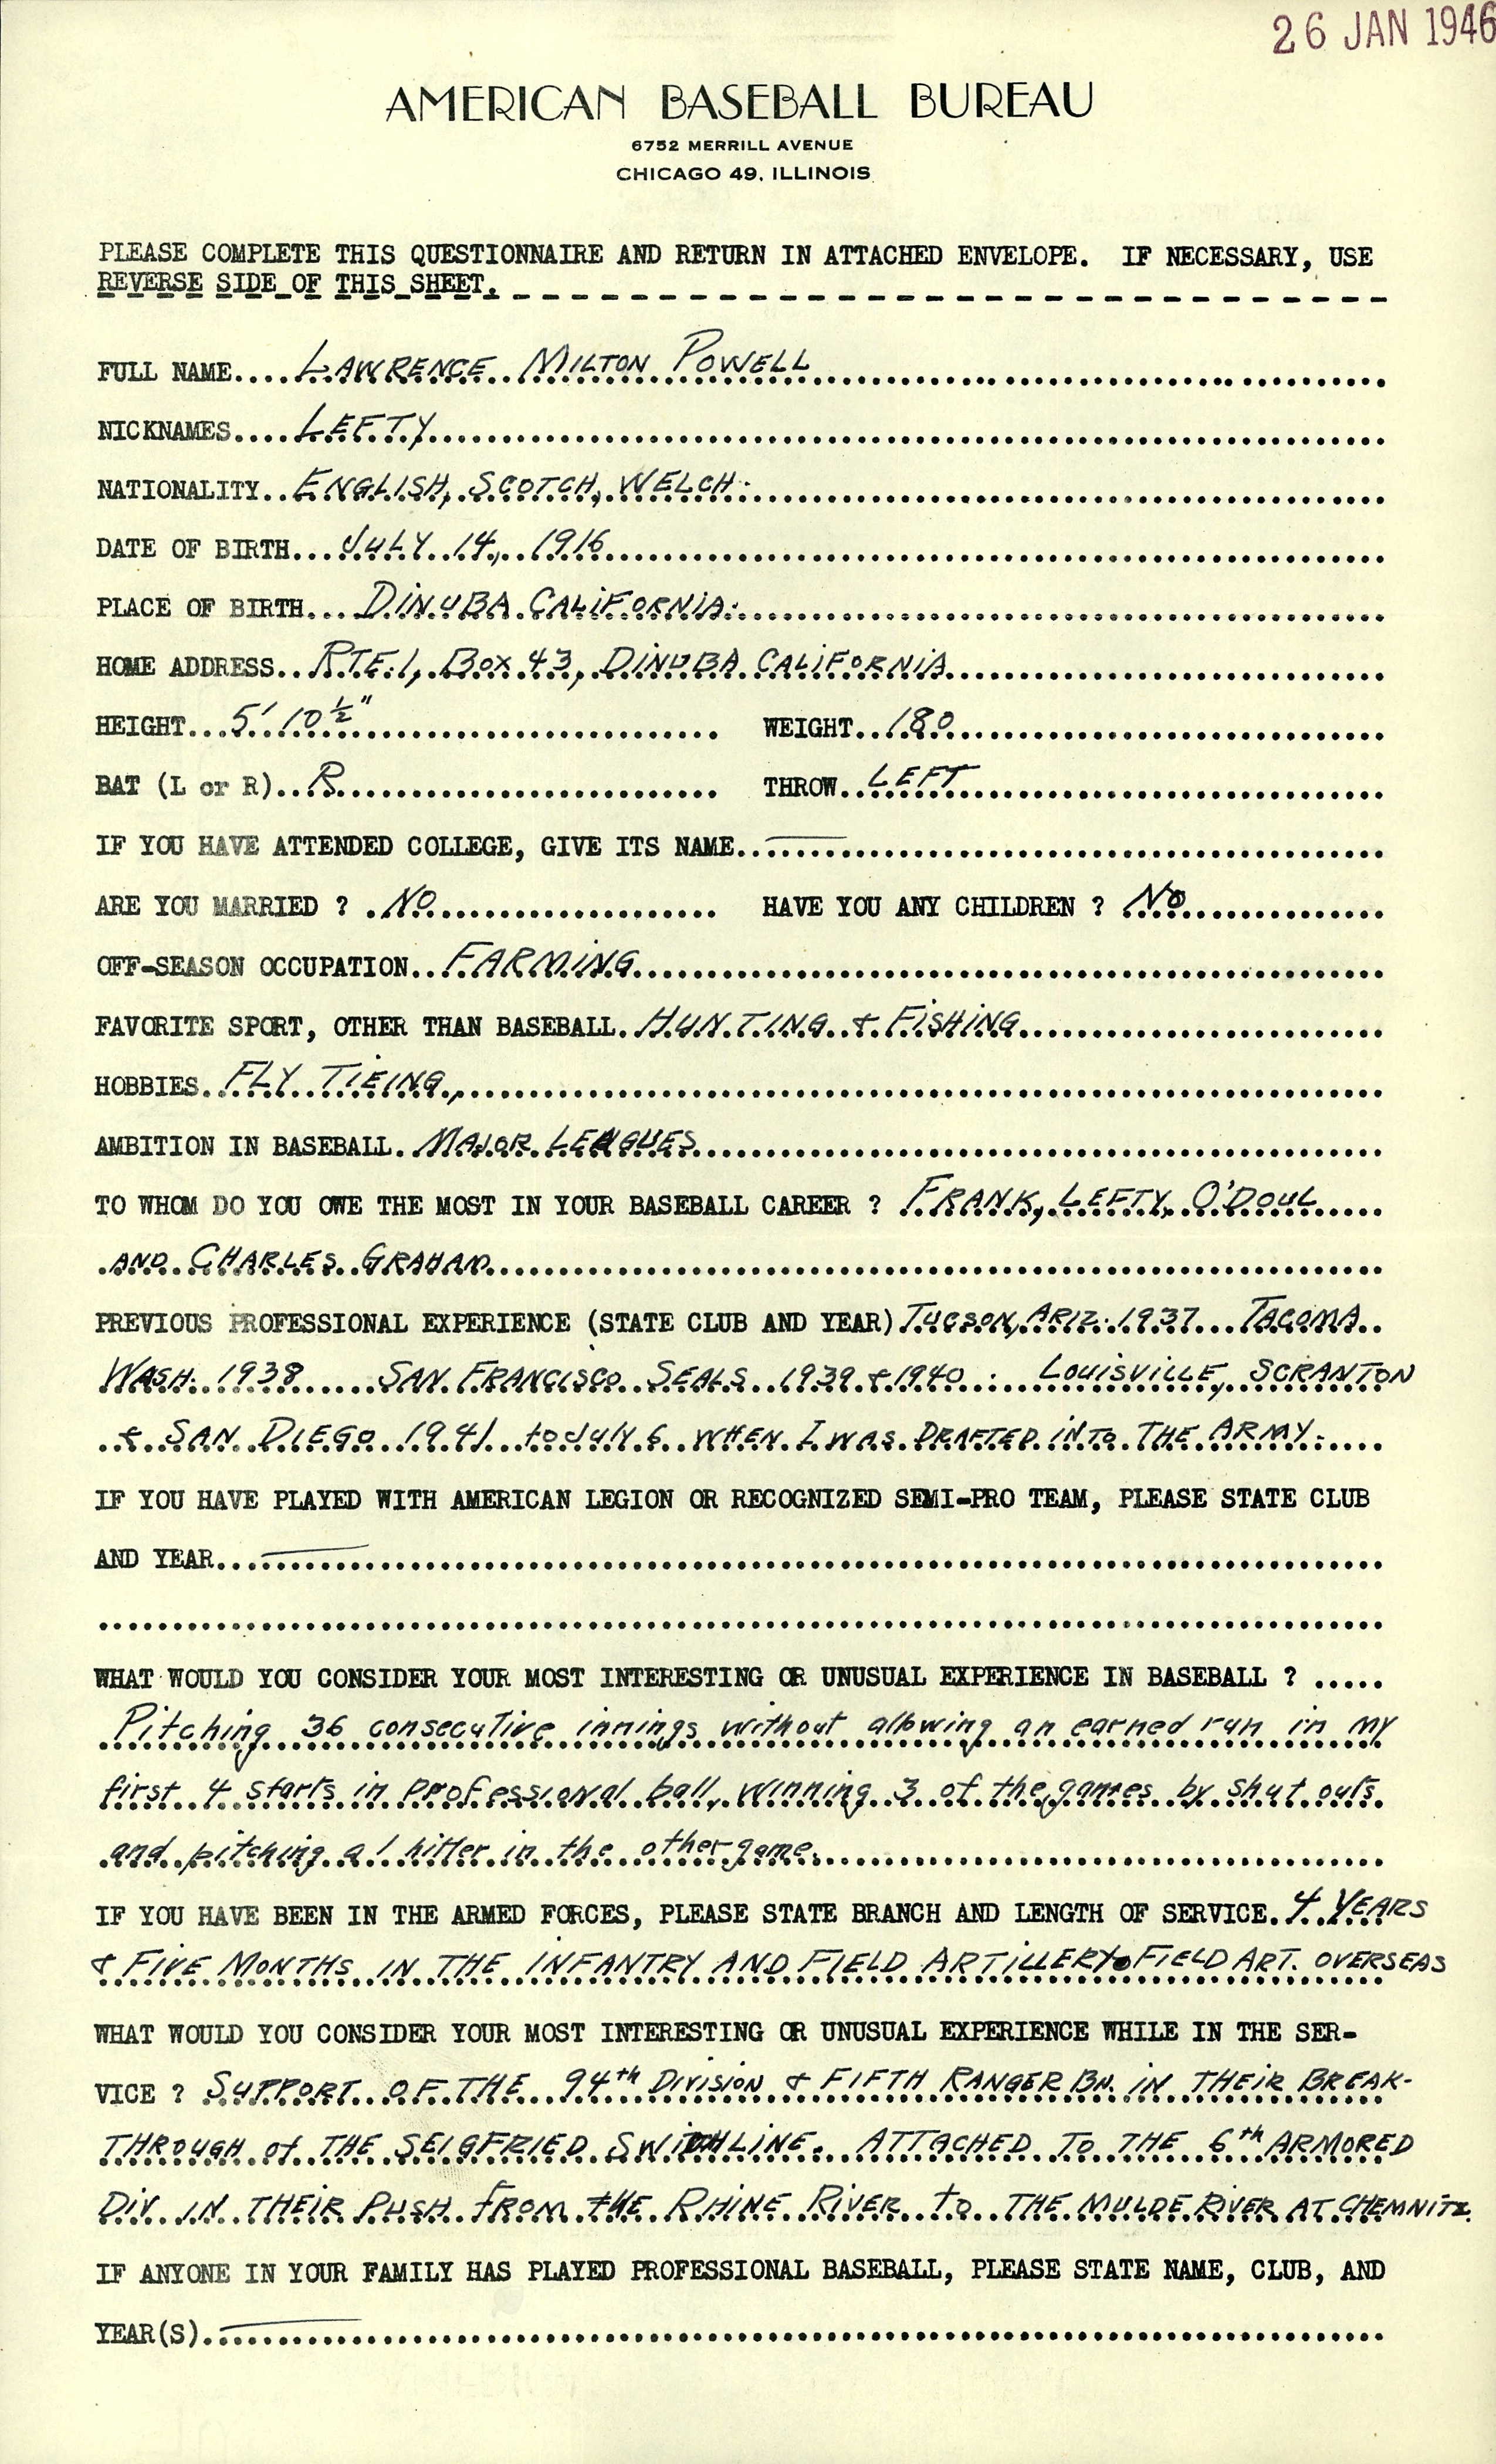 26 JAN 1946
AMERICAN BASEBALL BUREAU
6752 MERRILL AVENUE
CHICAGO 49, ILLINOIS
PLEASE COMPLETE THIS QUESTIONNAIRE AND RETURN IN ATTACHED ENVELOPE. IF NECESSARY, USE
REVERSE SIDE OF THIS SHEET.
FULL NAME.... LAWRENCE MILTON POWELL
NICKNAMES.... LEFTY
NATIONALITY.. ENGLISH, SCOTCH, WELCH.
DATE OF BIRTH... JULY 14, 1916
PLACE OF BIRTH... DINUBA CALIFORNIA.
HOME ADDRESS.. RTE. 1, BOX 43, DINUBA CALIFORNIA
HEIGHT... 5' 10 1/2" WEIGHT.. 180
BAT (L or R).. R THROW.. LEFT
IF YOU HAVE ATTENDED COLLEGE, GIVE ITS NAME.. —
ARE YOU MARRIED ? NO HAVE YOU ANY CHILDREN ? NO
OFF-SEASON OCCUPATION.. FARMING
FAVORITE SPORT, OTHER THAN BASEBALL. HUNTING & FISHING
HOBBIES. FLY TIEING,
AMBITION IN BASEBALL. MAJOR LEAGUES
TO WHOM DO YOU OWE THE MOST IN YOUR BASEBALL CAREER ? FRANK, LEFTY, O'DOUL
AND CHARLES GRAHAM
PREVIOUS PROFESSIONAL EXPERIENCE (STATE CLUB AND YEAR) TUCSON, ARIZ. 1937 TACOMA
WASH. 1938 SAN FRANCISCO SEALS 1939 & 1940 . LOUISVILLE, SCRANTON
& SAN DIEGO 1941 to JULY 6 WHEN I WAS DRAFTED INTO THE ARMY.
IF YOU HAVE PLAYED WITH AMERICAN LEGION OR RECOGNIZED SEMI-PRO TEAM, PLEASE STATE CLUB
AND YEAR... —
WHAT WOULD YOU CONSIDER YOUR MOST INTERESTING OR UNUSUAL EXPERIENCE IN BASEBALL ? .....
Pitching 36 consecutive innings without allowing an earned run in my
first 4 starts in professional ball, winning 3 of the games by shut outs
and pitching a 1 hitter in the other game.
IF YOU HAVE BEEN IN THE ARMED FORCES, PLEASE STATE BRANCH AND LENGTH OF SERVICE. 4 YEARS
& FIVE MONTHS IN THE INFANTRY AND FIELD ARTILLERY. FIELD ART. OVERSEAS
WHAT WOULD YOU CONSIDER YOUR MOST INTERESTING OR UNUSUAL EXPERIENCE WHILE IN THE SER-
VICE ? SUPPORT OF THE 94th DIVISION & FIFTH RANGER BN. IN THEIR BREAK-
THROUGH of THE SEIGFRIED SWITCHLINE. ATTACHED TO THE 6th ARMORED
DIV. IN THEIR PUSH FROM THE RHINE RIVER to THE MULDE RIVER AT CHEMNITZ.
IF ANYONE IN YOUR FAMILY HAS PLAYED PROFESSIONAL BASEBALL, PLEASE STATE NAME, CLUB, AND
YEAR(S). —